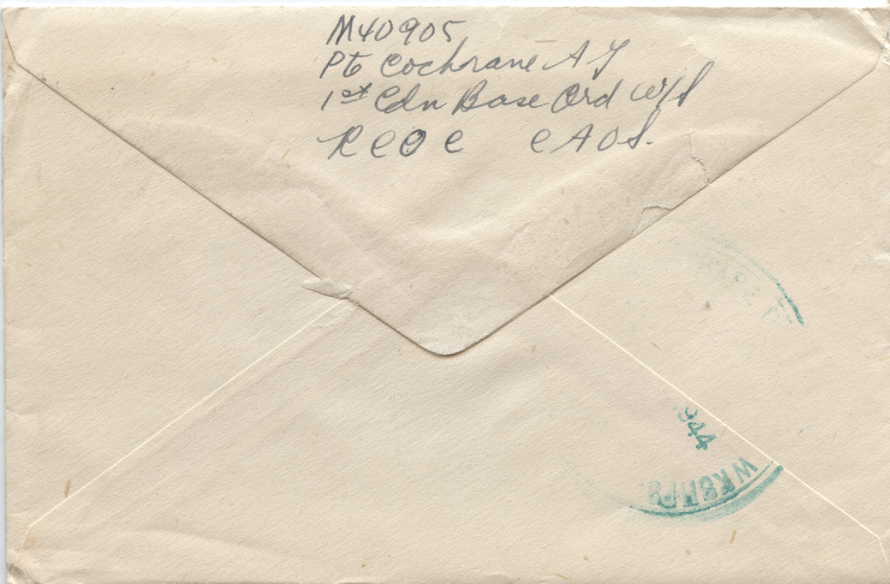 M40905
Pte Cochrane A J
1st Cdn Base Ord W/S
R C O C C A O S.
944
WKSHPS